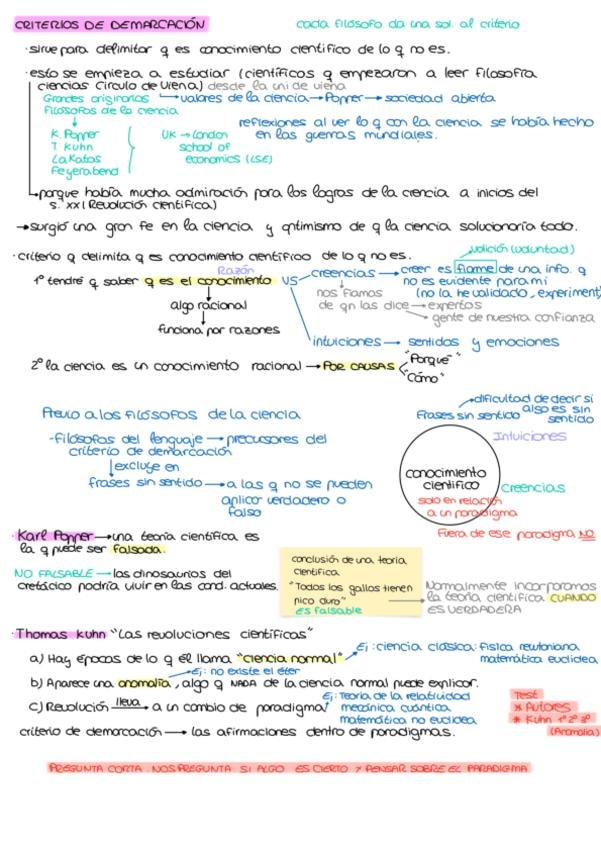 CRITERIOS DE DEMARCACIÓN
cada filósofo da una sol. al criterio
· sirve para delimitar q es conocimiento científico de lo q no es.
· esto se empieza a estudiar (científicos q empezaron a leer filosofía
ciencias círculo de Viena) desde la uni de viena
Grandes originarios → valores de la ciencia → Popper → sociedad abierta
Filósofos de la ciencia
reflexiones al ver lo q con la ciencia se había hecho
en las guerras mundiales.
K. Popper
T. Kuhn
Lakatos
Feyerabend
UK → London
school of
economics (LSE)
→ porque había mucha admiración para los logros de la ciencia a inicios del
s. XX (Revolución científica)
→ surgió una gran fe en la ciencia y optimismo de q la ciencia solucionaría todo.
· criterio q delimita q es conocimiento científico de lo q no es.
volición (voluntad)
Razón
1º tendré q saber q es el conocimiento VS creencias → creer es fiarme de una info. q
no es evidente para mi
(no la he validado, experiment
nos fiamos
de qn las dice → expertos
→ gente de nuestra confianza
algo racional
funciona por razones
intuiciones → sentidos y emociones
2º la ciencia es un conocimiento racional → POR CAUSAS
"Porqué"
"Cómo"
Previo a los filósofos de la ciencia
- filósofos del lenguaje → precursores del
criterio de demarcación
excluye en
frases sin sentido → a las q no se pueden
aplicar verdadero o
falso
dificultad de decir si
algo es sin
sentido
Frases sin sentido
Intuiciones
conocimiento
científico
Creencias
solo en relación
a un paradigma
Fuera de ese paradigma NO
· Karl Popper → una teoría científica es
la q puede ser falsada.
NO FALSABLE → los dinosaurios del
cretácico podría vivir en las cond. actuales.
conclusión de una teoría
científica
"Todos los gallos tienen
pico duro"
es falsable
→ Normalmente incorporamos
la teoría científica CUANDO
ES VERDADERA
· Thomas Kuhn "Las revoluciones científicas"
a) Hay épocas de lo q él llama "ciencia normal"
Ej: ciencia clásica: física newtoniana
matemática euclidea
Ej: no existe el éter
b) Aparece una anomalía, algo q NADA de la ciencia normal puede explicar.
c) Revolución lleva → a un cambio de paradigma
Ej: Teoría de la relatividad
mecánica cuántica
matemática no euclidea
criterio de demarcación → las afirmaciones dentro de paradigmas.
Test
* Autores
* Kuhn 1º 2º 3º
(Anomalía)
PREGUNTA CORTA. NOS PREGUNTA SI ALGO ES CIERTO Y PENSAR SOBRE EL PARADIGMA